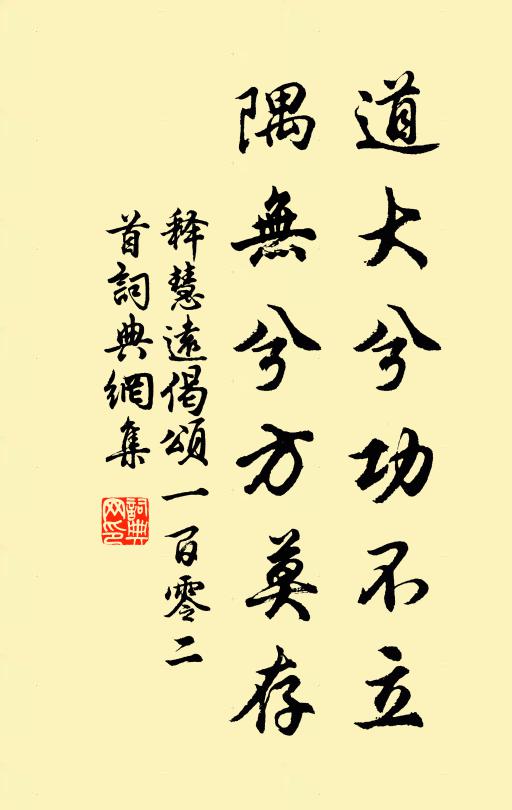 道大兮功不立
隅無兮方莫存
释慧遠偈頌一百零二
首詞典網集
詞典
网印